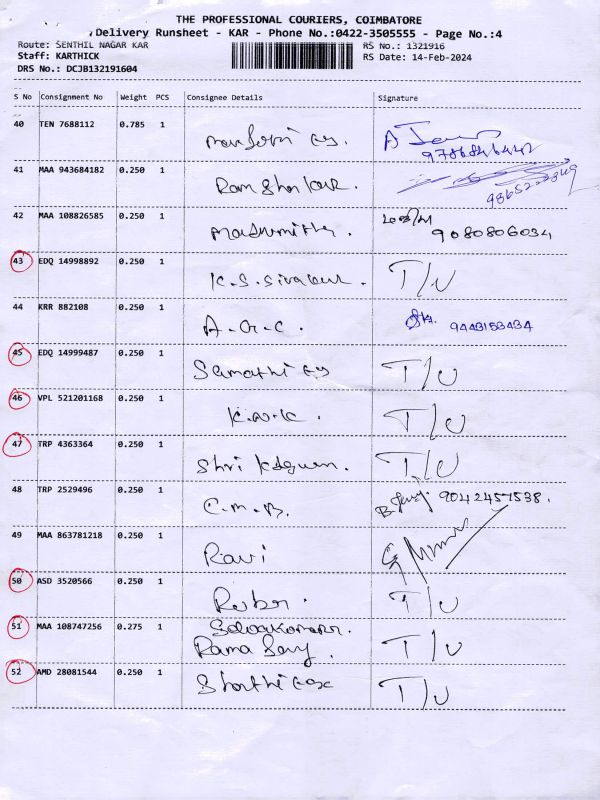 THE PROFESSIONAL COURIERS, COIMBATORE
Delivery Runsheet - KAR - Phone No.:0422-3505555 - Page No.:4
Route: SENTHIL NAGAR KAR RS No.: 1321916
Staff: KARTHICK RS Date: 14-Feb-2024
DRS No.: DCJB132191604
S No Consignment No Weight PCS Consignee Details Signature
40 TEN 7688112 0.785 1
9786846442
41 MAA 943684182 0.250 1 Ram Shankar.
42 MAA 108826585 0.250 1 Madumitha.
9080806034
43 EDQ 14998892 0.250 1 K.S. Sivakumar T/U
44 KRR 882108 0.250 1 A.G.C. 9443153434
45 EDQ 14999487 0.250 1 T/U
46 VPL 521201168 0.250 1 T/U
47 TRP 4363364 0.250 1 Shri T/U
48 TRP 2529496 0.250 1 C.M.B. 9042457538.
49 MAA 863781218 0.250 1 Ravi
50 ASD 3520566 0.250 1 T/U
51 MAA 108747256 0.275 1 Selvakumar.
Rama T/U
52 AMD 28081544 0.250 1 T/U